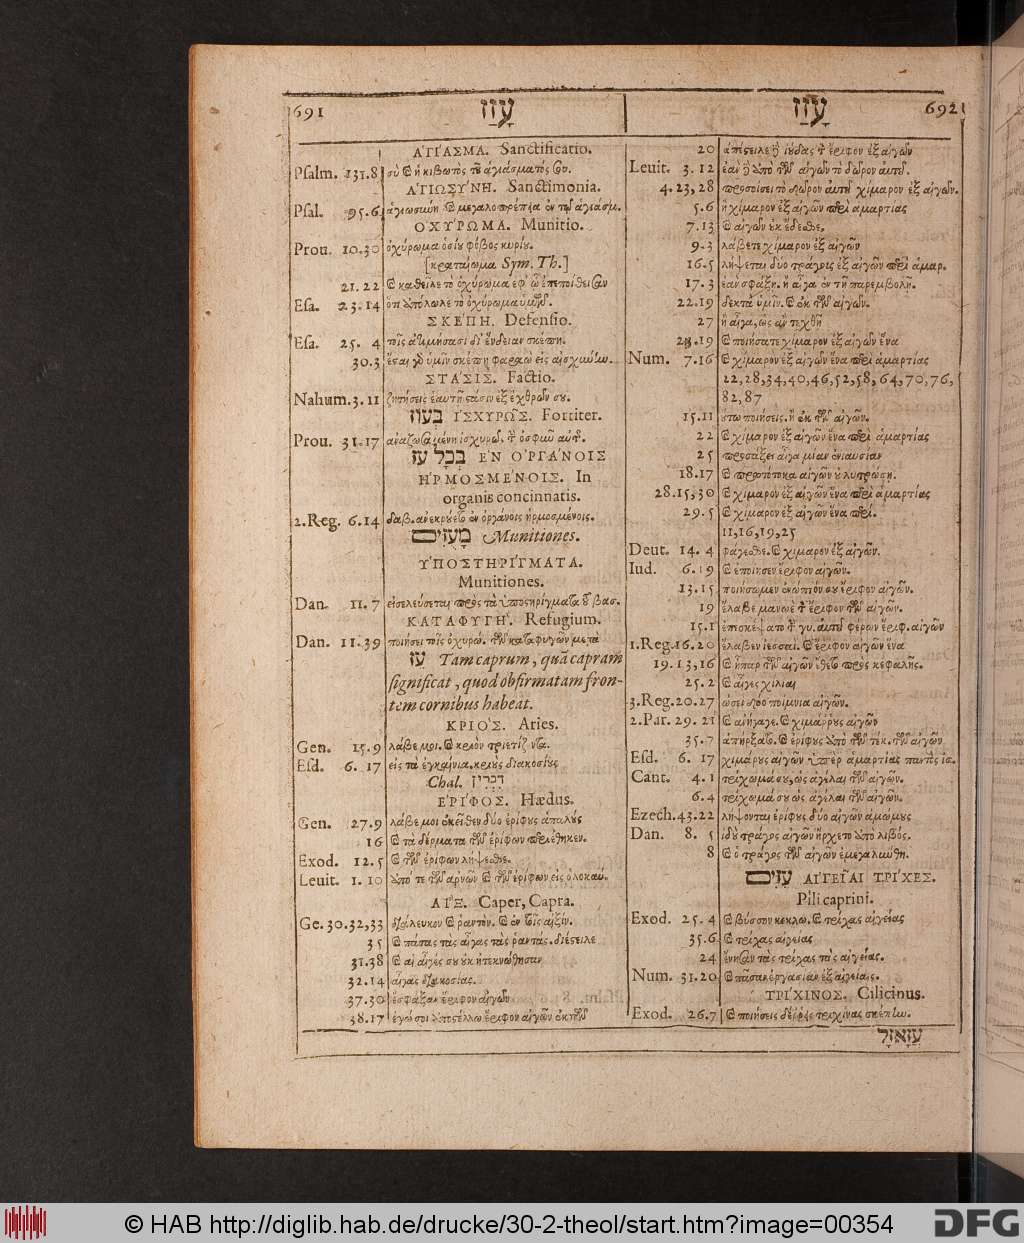 691 עָזַז
ἉΓΊΑΣΜΑ. Sanctificatio.
Psalm. 131.8 σὺ καὶ ἡ κιβωτὸς τοῦ ἁγιάσματός σου.
ἉΓΙΩΣΎΝΗ. Sanctimonia.
Psal. 95.6 ἁγιωσύνη καὶ μεγαλοπρέπεια ἐν τῷ ἁγιάσμ.
ὈΧΎΡΩΜΑ. Munitio.
Prou. 10.30 ὀχύρωμα ὁσίου φόβος κυρίου.
[κραταίωμα Sym. Th.]
21.22 καὶ καθεῖλε τὸ ὀχύρωμα ἐφ' ᾧ ἐπεποίθεισαν
Esa. 23.14 ὅτι ἀπόλωλε τὸ ὀχύρωμα ὑμῶν.
ΣΚΈΠΗ. Defensio.
Esa. 25. 4 τοῖς ἀθυμήσασι δι' ἔνδειαν σκέπη.
30.3 ἔσται γὰρ ὑμῖν σκέπη φαραὼ εἰς αἰσχύνην.
ΣΤΆΣΙΣ. Factio.
Nahum. 3.11 ζητήσεις ἑαυτῇ στάσιν ἐξ ἐχθρῶν σου.
בְּעוֹז ἸΣΧΥΡΩ͂Σ. Fortiter.
Prou. 31.17 ἀναζωσαμένη ἰσχυρῶς τὴν ὀσφὺν αὐτῆς.
בְּכָל עֹז ἘΝ ὈΡΓΆΝΟΙΣ
ἩΡΜΟΣΜΈΝΟΙΣ. In
organis concinnatis.
2.Reg. 6.14 δαβ. ἀνεκρούετο ἐν ὀργάνοις ἡρμοσμένοις.
מָעֻזִּים Munitiones.
ὙΠΟΣΤΗΡΊΓΜΑΤΑ.
Munitiones.
Dan. 11. 7 εἰσελεύσεται πρὸς τὰ ὑποστηρίγματα τοῦ βασ.
ΚΑΤΑΦΥΓΉ. Refugium.
Dan. 11.39 ποιήσει τοῖς ὀχυρώ. τῶν καταφυγῶν μετὰ
עֵז Tam caprum, quā capram
significat, quod obfirmatam fron-
tem cornibus habeat.
ΚΡΙΌΣ. Aries.
Gen. 15.9 λάβε μοι. καὶ κριὸν τριετίζοντα.
Esd. 6. 17 εἰς τὰ ἐγκαίνια. κριοὺς διακοσίους
Chal. דִּכְרִין
ἜΡΙΦΟΣ. Hædus.
Gen. 27.9 λάβε μοι ἐκεῖθεν δύο ἐρίφους ἁπαλοὺς
16 καὶ τὰ δέρματα τῶν ἐρίφων περιέθηκεν.
Exod. 12.5 καὶ τῶν ἐρίφων λήψεσθε.
Leuit. 1. 10 ἀπό τε τῶν ἀρνῶν καὶ τῶν ἐρίφων εἰς ὁλοκαυ.
ΑἼΞ. Caper, Capra.
Ge. 30.32,33 διάλευκον καὶ ῥαντὸν. καὶ ἐν ταῖς αἰξίν.
35 καὶ πάσας τὰς αἶγας τὰς ῥαντὰς. διέστειλε
31.38 καὶ αἱ αἶγές σου οὐκ ἠτεκνώθησαν
32.14 αἶγας διακοσίας.
37.30 ἔσφαξαν ἔριφον αἰγῶν
38.17 ἐγώ σοι ἀποστέλλω ἔριφον αἰγῶν ἐκ τῶν
עָזַז 692
20 ἀπέστειλε δὲ ἰούδας τὸν ἔριφον ἐξ αἰγῶν
Leuit. 3. 12 ἐὰν δὲ ἀπὸ τῶν αἰγῶν τὸ δῶρον αὐτοῦ.
4.23,28 προσοίσει τὸ δῶρον αὐτοῦ χίμαρον ἐξ αἰγῶν.
5.6 ἢ χίμαρον ἐξ αἰγῶν περὶ ἁμαρτίας
7.13 καὶ αἰγῶν οὐκ ἔδεσθε.
9.3 λάβετε χίμαρον ἐξ αἰγῶν
16.5 λήψεται δύο τράγους ἐξ αἰγῶν περὶ ἁμαρ.
17.3 ἐὰν σφάξῃ. ἢ αἶγα ἐν τῇ παρεμβολῇ.
22.19 δεκτὰ ὑμῖν. καὶ ἐκ τῶν αἰγῶν.
27 ἢ αἶγα, ὡς ἂν τεχθῇ
23.19 καὶ ποιήσατε χίμαρον ἐξ αἰγῶν ἕνα
Num. 7.16 καὶ χίμαρον ἐξ αἰγῶν ἕνα περὶ ἁμαρτίας
22,28,34,40,46,52,58,64,70,76,
82,87
15.11 οὕτω ποιήσεις. ἢ ἐκ τῶν αἰγῶν.
22 καὶ χίμαρον ἐξ αἰγῶν ἕνα περὶ ἁμαρτίας
25 προσάξει αἶγα μίαν ἐνιαυσίαν
18.17 καὶ πρωτότοκα αἰγῶν οὐ λυτρώσῃ.
28.15,30 καὶ χίμαρον ἐξ αἰγῶν ἕνα περὶ ἁμαρτίας
29.5 καὶ χίμαρον ἐξ αἰγῶν ἕνα περί.
11,16,19,25
Deut. 14. 4 φάγεσθε. καὶ χίμαρον ἐξ αἰγῶν.
Iud. 6.19 καὶ ἐποίησεν ἔριφον αἰγῶν.
13.15 ποιήσωμεν ἐνώπιόν σου ἔριφον αἰγῶν.
19 ἔλαβε μανωὲ τὸν ἔριφον τῶν αἰγῶν.
15.1 ἐπεσκέψατο τὴν γυ. αὐτοῦ φέρων ἔριφ. αἰγῶν
1.Reg. 16.20 ἔλαβεν ἰεσσαί. καὶ ἔριφον αἰγῶν ἕνα
19.13,16 καὶ ἧπαρ τῶν αἰγῶν ἔθετο πρὸς κεφαλῆς.
25.2 καὶ αἶγες χίλιαι
3.Reg. 20.27 ὡσεὶ δύο ποίμνια αἰγῶν.
2.Par. 29. 21 καὶ ἀνήγαγε. καὶ χιμάρους αἰγῶν
35.7 ἀπήρξατο. καὶ ἐρίφους ἀπὸ τῶν τέκ. τῶν αἰγῶν
Esd. 6. 17 χιμάρους αἰγῶν ὑπὲρ ἁμαρτίας παντὸς ἰσ.
Cant. 4.1 τρίχωμά σου, ὡς ἀγέλαι τῶν αἰγῶν.
6.4 τρίχωμά σου ὡς ἀγέλαι τῶν αἰγῶν.
Ezech. 43.22 λήψονται ἐρίφους δύο αἰγῶν ἀμώμους
Dan. 8. 5 ἰδοὺ τράγος αἰγῶν ἤρχετο ἀπὸ λιβός.
8 καὶ ὁ τράγος τῶν αἰγῶν ἐμεγαλύνθη.
עִזִּים ΑἸΓΕΙ͂ΑΙ ΤΡΊΧΕΣ.
Pili caprini.
Exod. 25.4 καὶ βύσσον κεκλω. καὶ τρίχας αἰγείας
35.6 καὶ τρίχας αἰγείας
24 ἔνησαν τὰς τρίχας τὰς αἰγείας.
Num. 31.20 καὶ πᾶσαν ἐργασίαν ἐξ αἰγείας.
ΤΡΊΧΙΝΟΣ. Cilicinus.
Exod. 26.7 καὶ ποιήσεις δέρρεις τριχίνας σκέπην.
עֲזָאזֵל
© HAB http://diglib.hab.de/drucke/30-2-theol/start.htm?image=00354
DFG